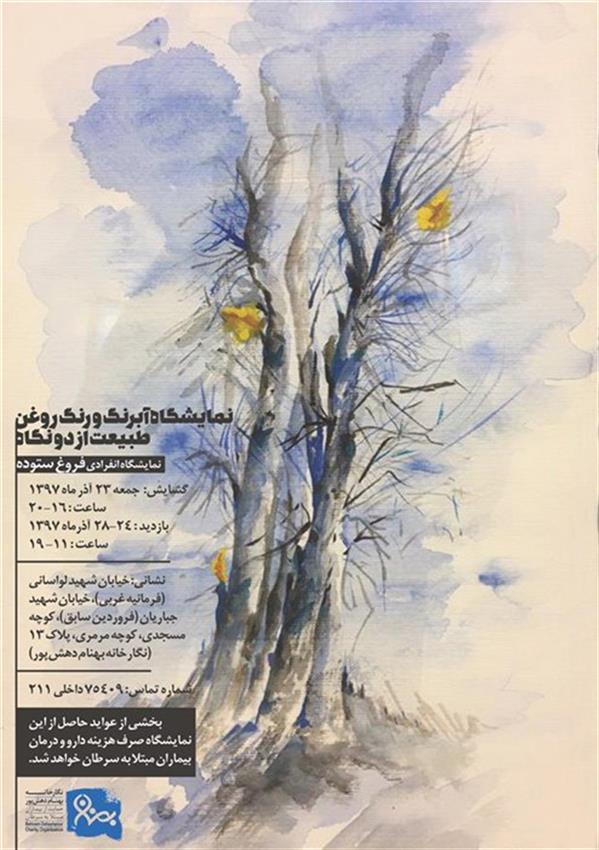 نمایشگاه آبرنگ و رنگ روغن
طبیعت از دو نگاه
نمایشگاه انفرادی فروغ ستوده
گشایش: جمعه ۲۳ آذر ماه ۱۳۹۷
ساعت: ۱۶-۲۰
بازدید: ۲۴-۲۸ آذرماه ۱۳۹۷
ساعت: ۱۱-۱۹
نشانی: خیابان شهید لواسانی
(فرمانیه غربی)، خیابان شهید
جباریان (فروردین سابق)، کوچه
مسجدی، کوچه مرمری، پلاک ۱۳
(نگارخانه بهنام دهش‌پور)
شماره تماس: ۷۵۴۰۹ داخلی ۲۱۱
بخشی از عواید حاصل از این
نمایشگاه صرف هزینه دارو و درمان
بیماران مبتلا به سرطان خواهد شد.
نگارخانه
بهنام دهش‌پور
حمایت از بیماران
مبتلا به سرطان
Behnam Daheshpour
Charity Organization
بهنام